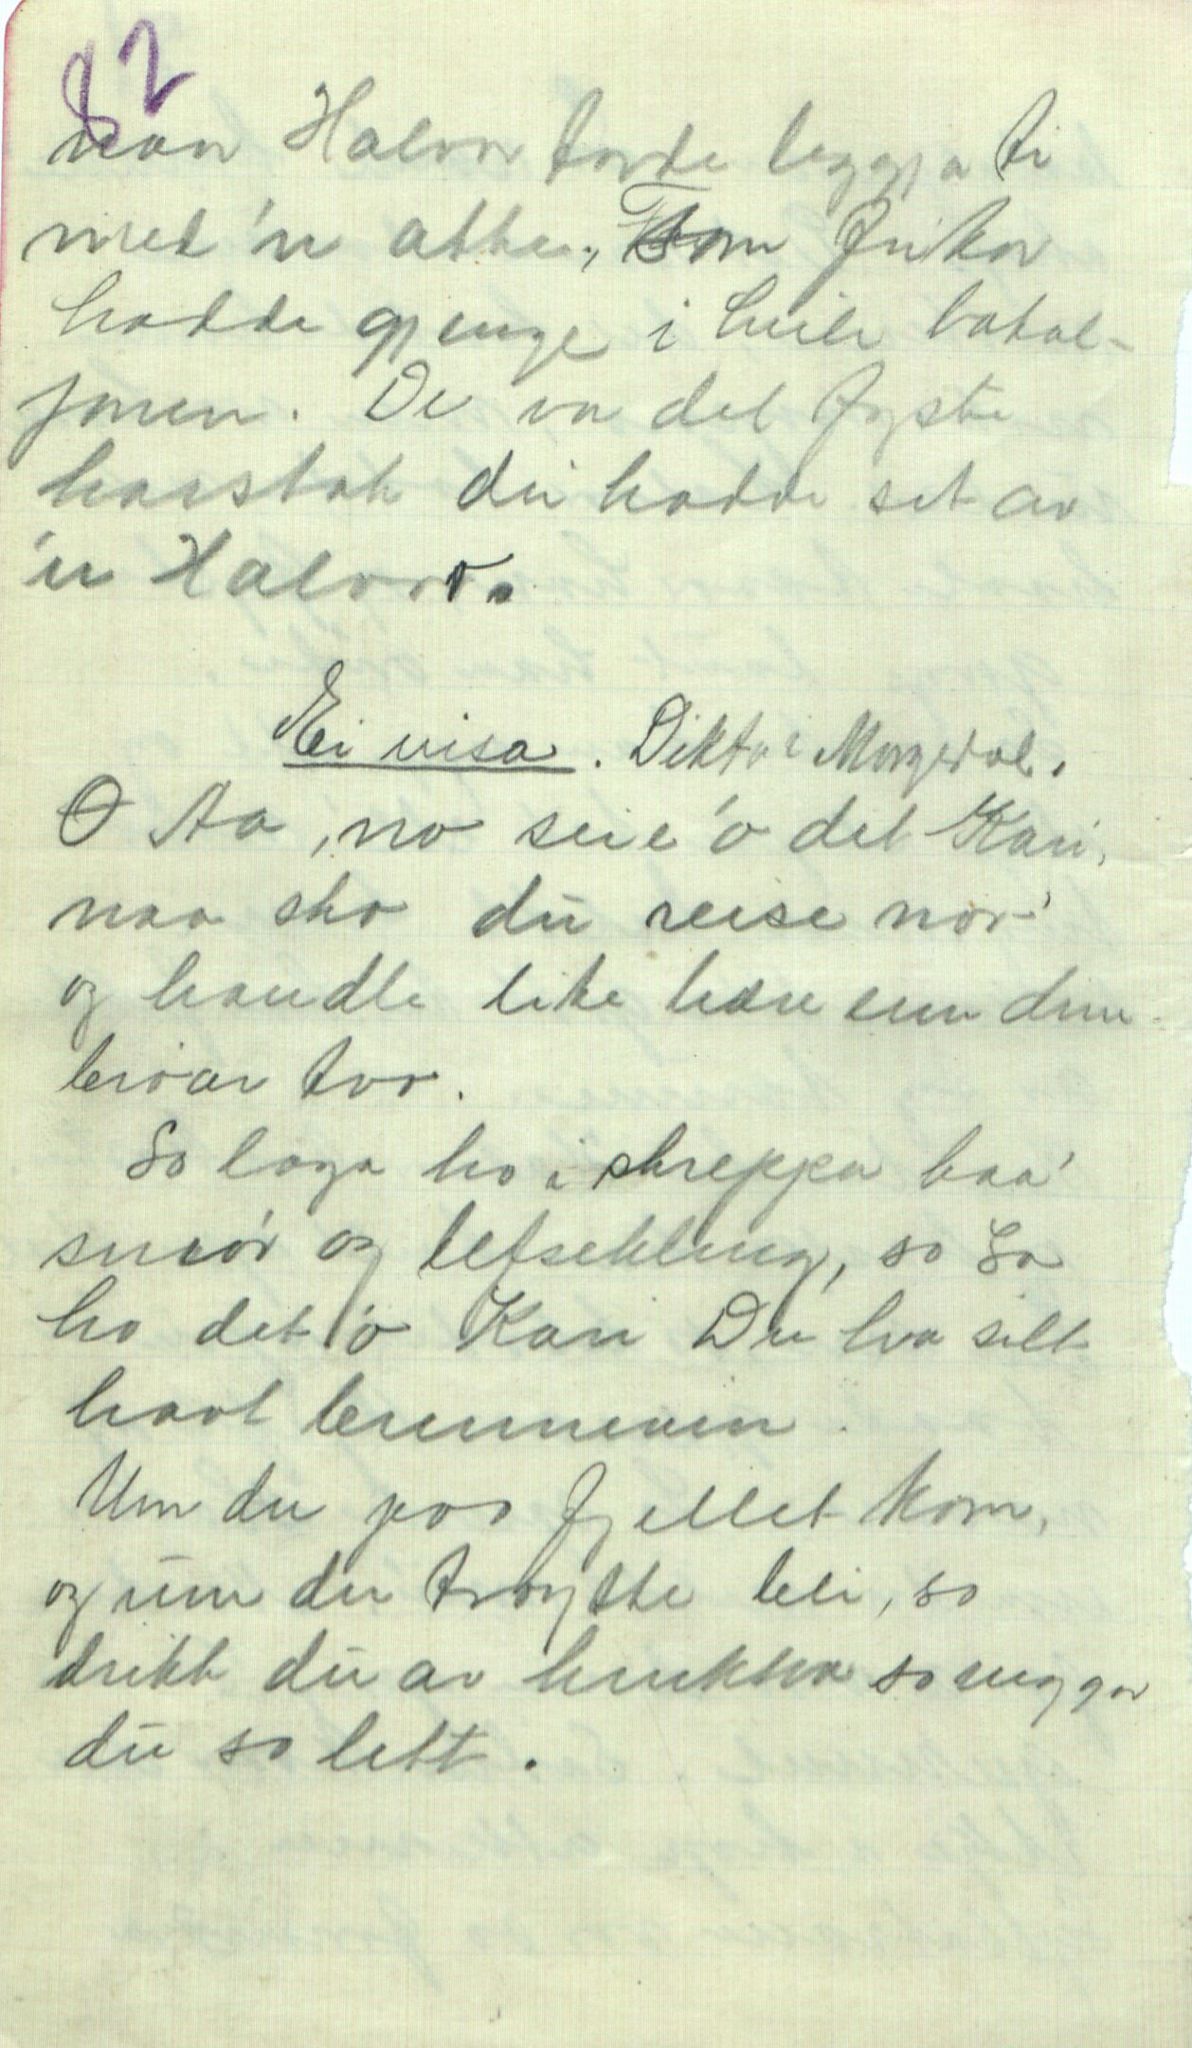 82
naar Halvor torde leggja ti
met 'n atte, som frikar
hadde gjenge i heile batal-
jonen. De va det fyste
haustak dei hadde set av
'n Halvor.
Ei visa. Dikta i Morgedal.
O Aa, no seie 'o det Kari,
naa sko du reise nor'
og handle like bære enn din
broar tor.
So laga ho i skreppa baa'
smör og lefsekling, so sa
ho det 'o Kari Du ha silt
havt brennevin.
Um du paa fjellet kom,
og um du trøytte bli, so
drikk du av krukka so ruggar
du so lett.